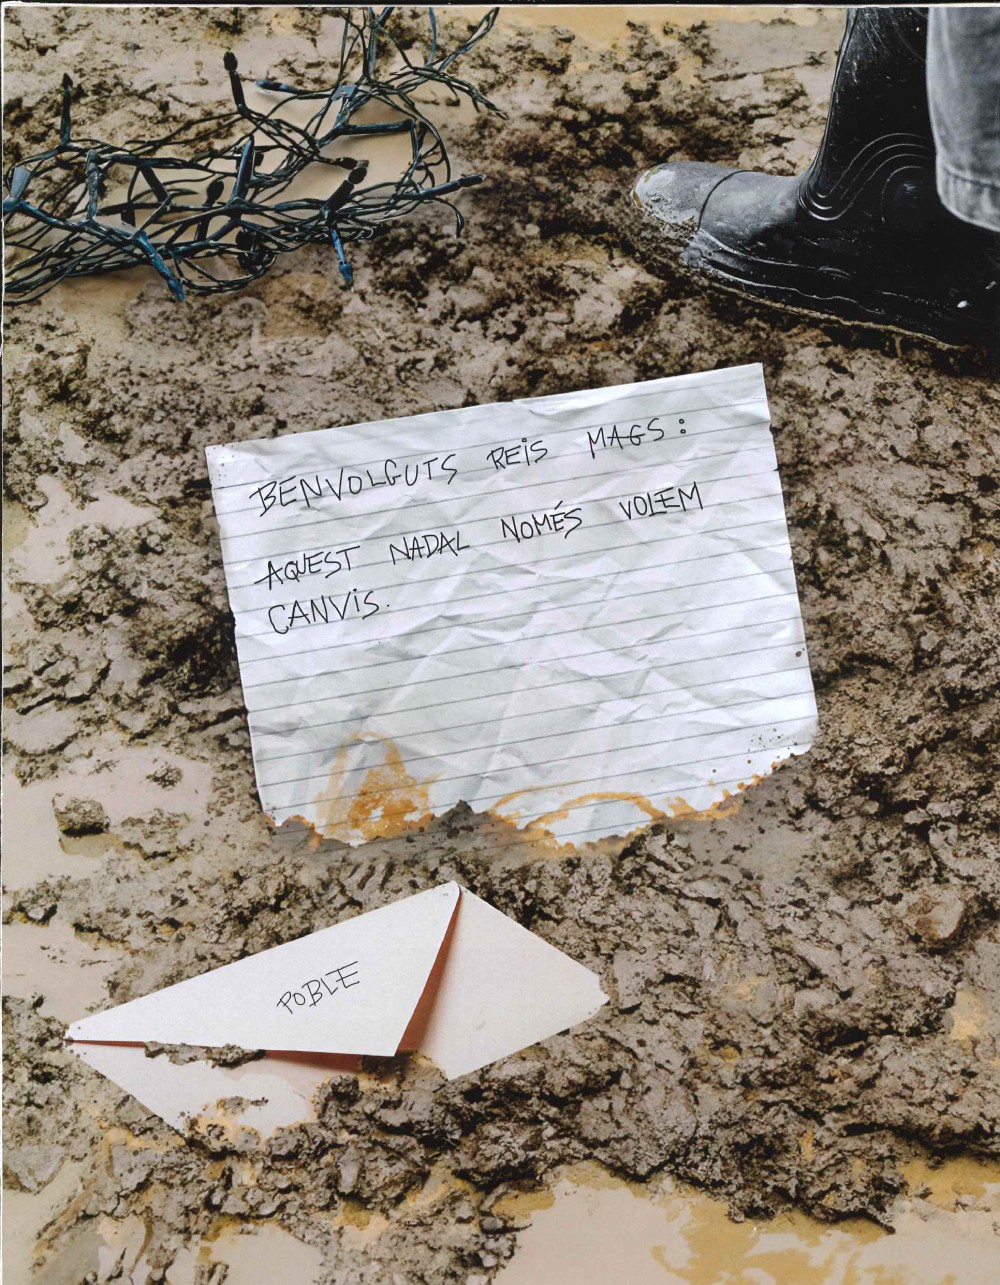 BENVOLGUTS REIS MAGS:
AQUEST NADAL NOMÉS VOLEM
CANVIS.
POBLE